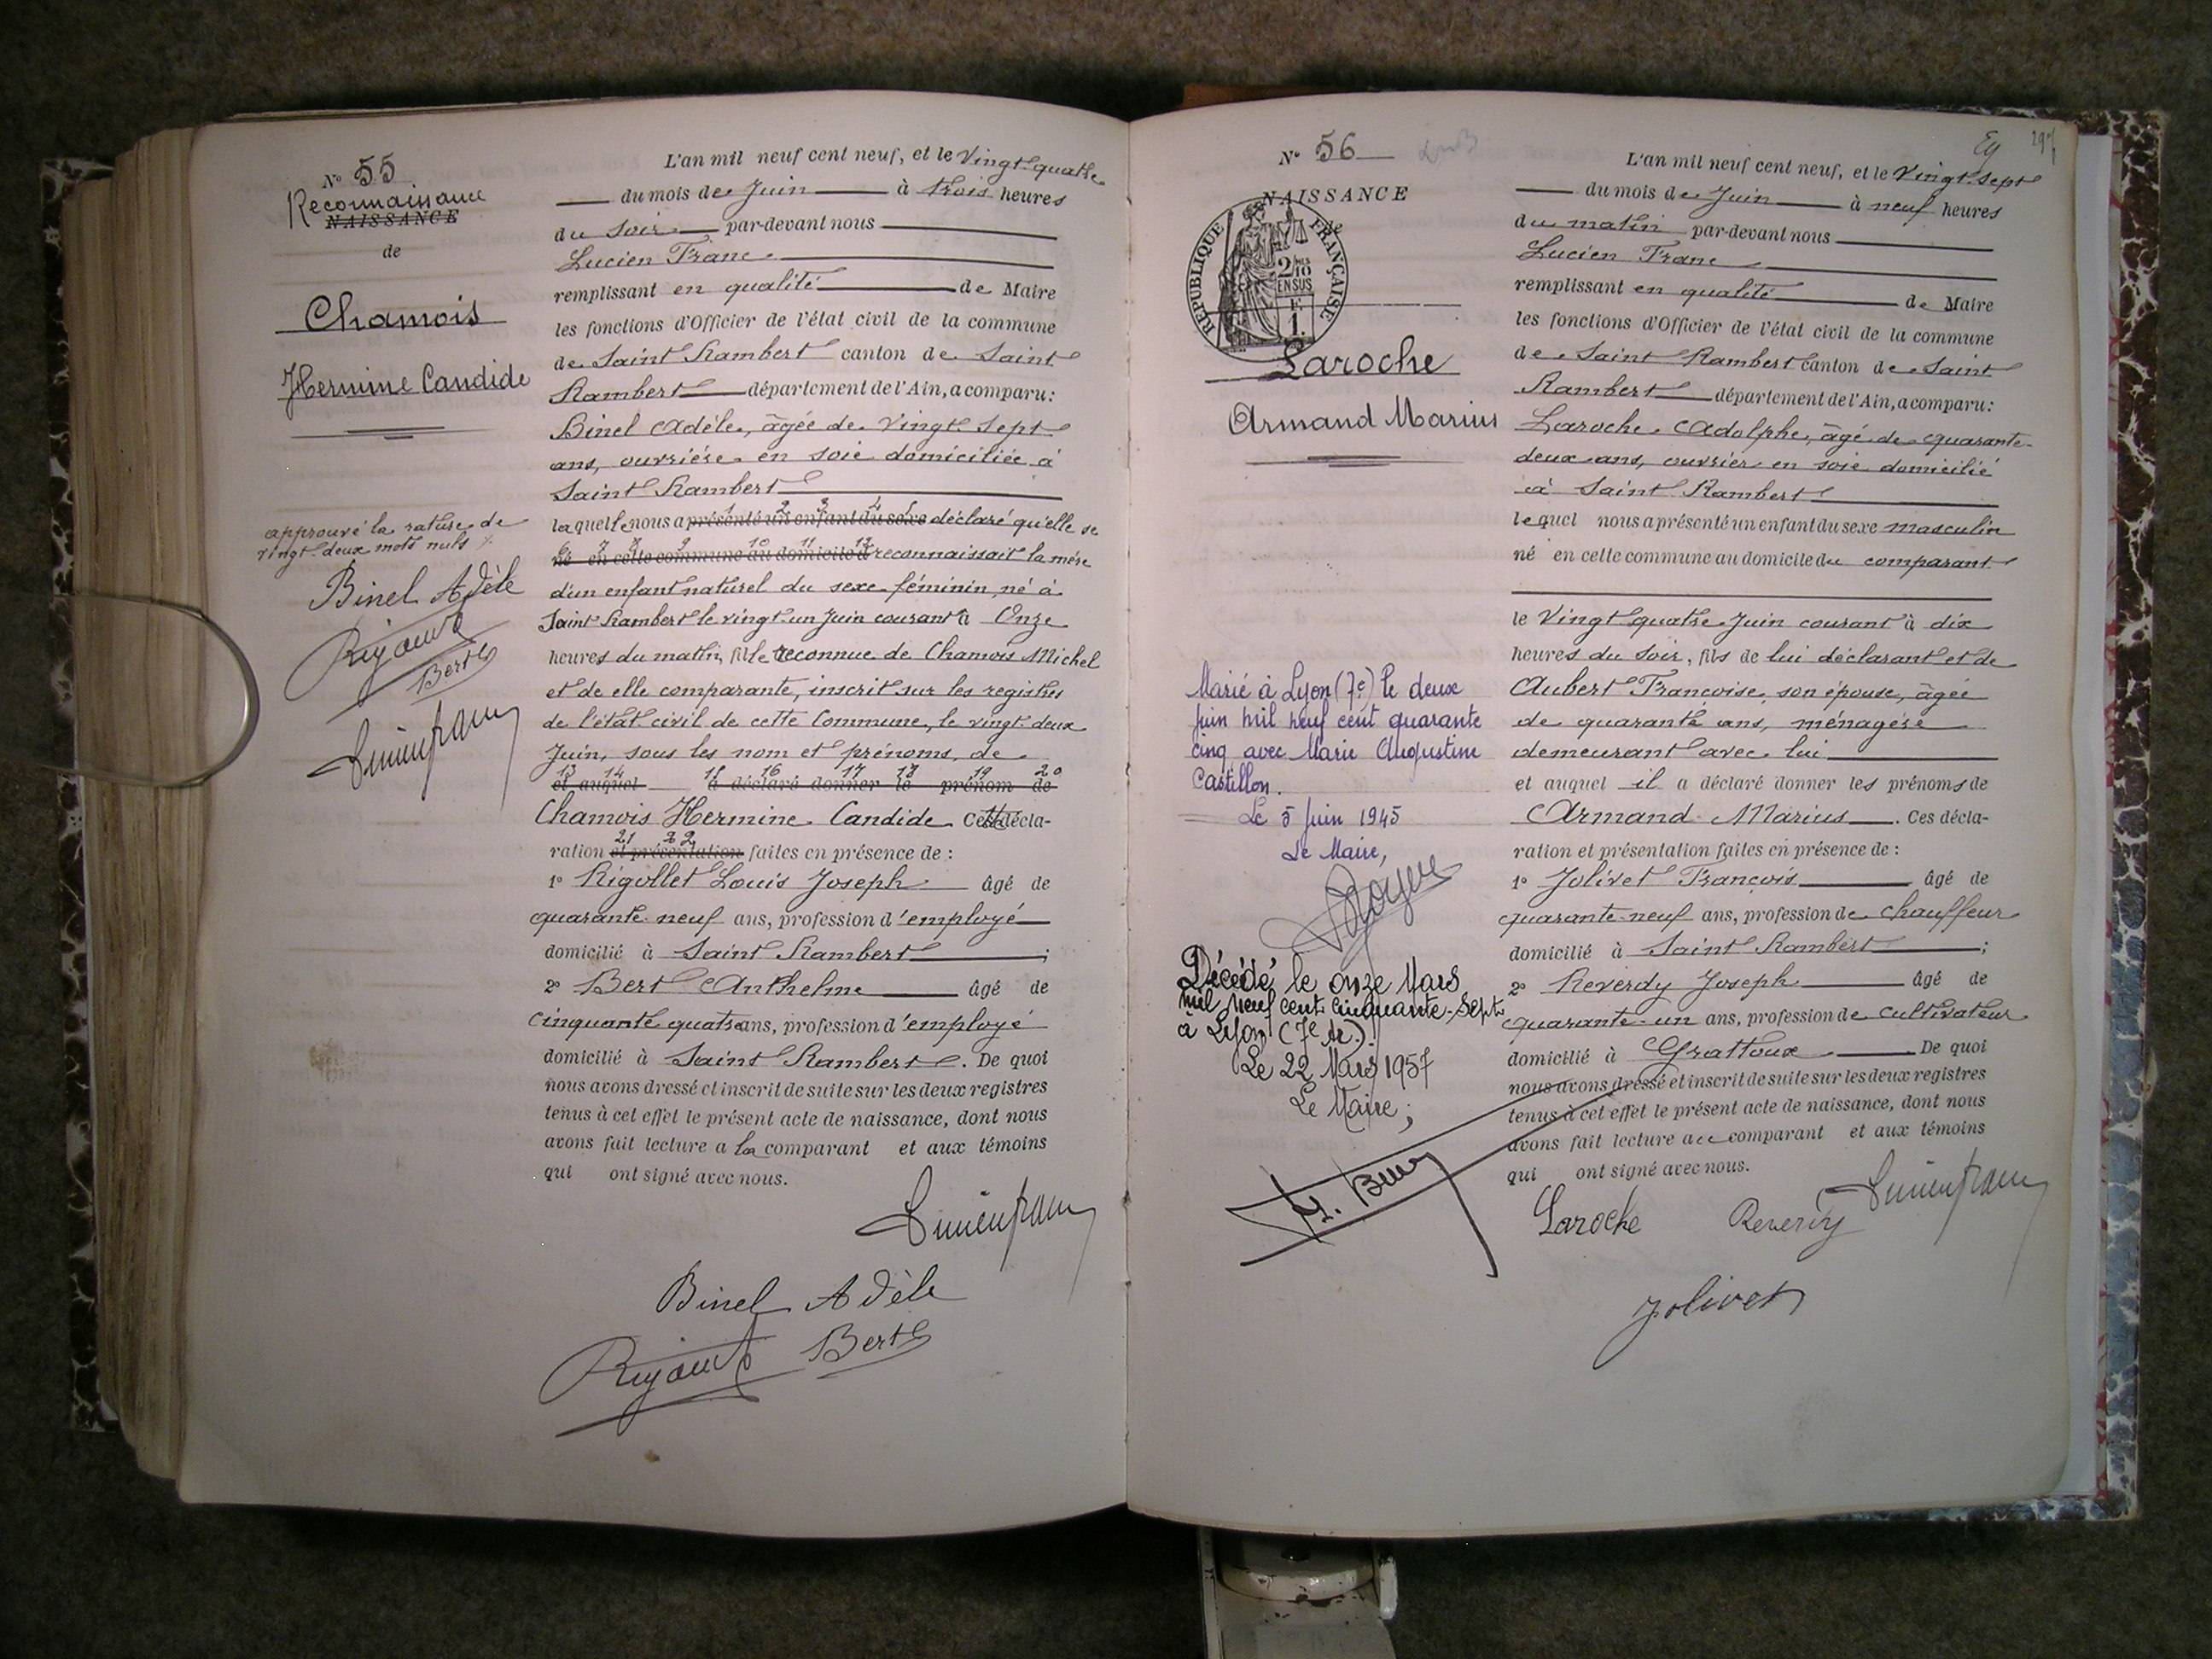 N° 55
Reconnaissance
NAISSANCE
de
Chamois
Hermine Candide
approuvé la rature de
vingt-deux mots nuls
Binel Adèle
Bert
L'an mil neuf cent neuf, et le Vingt-quatre
du mois de Juin à trois heures
du soir par-devant nous
Lucien Franc
remplissant en qualité de Maire
les fonctions d'Officier de l'état civil de la commune
de Saint Rambert canton de Saint
Rambert département de l'Ain, a comparu:
Binel Adèle, âgée de Vingt-sept
ans, ouvrière en soie domiciliée à
Saint Rambert
laquelle nous a présenté un enfant du sexe déclaré qu'elle se
1 2 3 4 5
né en cette commune au domicile d reconnaissait la mère
7 8 9 10 11 12
d'un enfant naturel du sexe féminin, né à
Saint Rambert le vingt-un Juin courant à Onze
heures du matin, fille reconnue de Chamois Michel
et de elle comparante, inscrit sur les registres
de l'état civil de cette Commune, le vingt deux
Juin, sous les nom et prénoms de
13 14 15 16 17 18 19 20
et auquel a déclaré donner le prénom de
Chamois Hermine Candide. Cette décla-
21 22
ration et présentation faites en présence de :
1° Rigollet Louis Joseph âgé de
quarante-neuf ans, profession d'employé
domicilié à Saint Rambert ;
2° Bert Anthelme âgé de
cinquante quatre ans, profession d'employé
domicilié à Saint Rambert. De quoi
nous avons dressé et inscrit de suite sur les deux registres
tenus à cet effet le présent acte de naissance, dont nous
avons fait lecture a la comparant et aux témoins
qui ont signé avec nous.
Lucien franc
Binel Adèle
Bert
N° 56
NAISSANCE
de
REPUBLIQUE FRANÇAISE
2/10 EN SUS
1.
Laroche
Armand Marius
Marié à Lyon (7e) le deux
juin mil neuf cent quarante
cinq avec Marie Augustine
Castillon.
Le 5 Juin 1945
Le Maire,
Décédé le onze Mars
mil neuf cent cinquante-sept
à Lyon (7e Ar.).
Le 22 Mars 1957
Le Maire;
297
L'an mil neuf cent neuf, et le Vingt-sept
du mois de Juin à neuf heures
du matin par-devant nous
Lucien Franc
remplissant en qualité de Maire
les fonctions d'Officier de l'état civil de la commune
de Saint Rambert canton de Saint
Rambert département de l'Ain, a comparu:
Laroche Adolphe, âgé de quarante-
deux ans, ouvrier en soie domicilié
à Saint Rambert
lequel nous a présenté un enfant du sexe masculin
né en cette commune au domicile du comparant
le Vingt quatre Juin courant à dix
heures du soir, fils de lui déclarant et de
Aubert Françoise, son épouse, âgée
de quarante ans, ménagère
demeurant avec lui
et auquel il a déclaré donner les prénoms de
Armand Marius. Ces décla-
ration et présentation faites en présence de :
1° Jolivet François âgé de
quarante-neuf ans, profession de chauffeur
domicilié à Saint Rambert ;
2° Reverdy Joseph âgé de
quarante-un ans, profession de cultivateur
domicilié à Grattoux. De quoi
nous avons dressé et inscrit de suite sur les deux registres
tenus à cet effet le présent acte de naissance, dont nous
avons fait lecture au comparant et aux témoins
qui ont signé avec nous.
Lucien franc
Laroche Reverdy
Jolivet